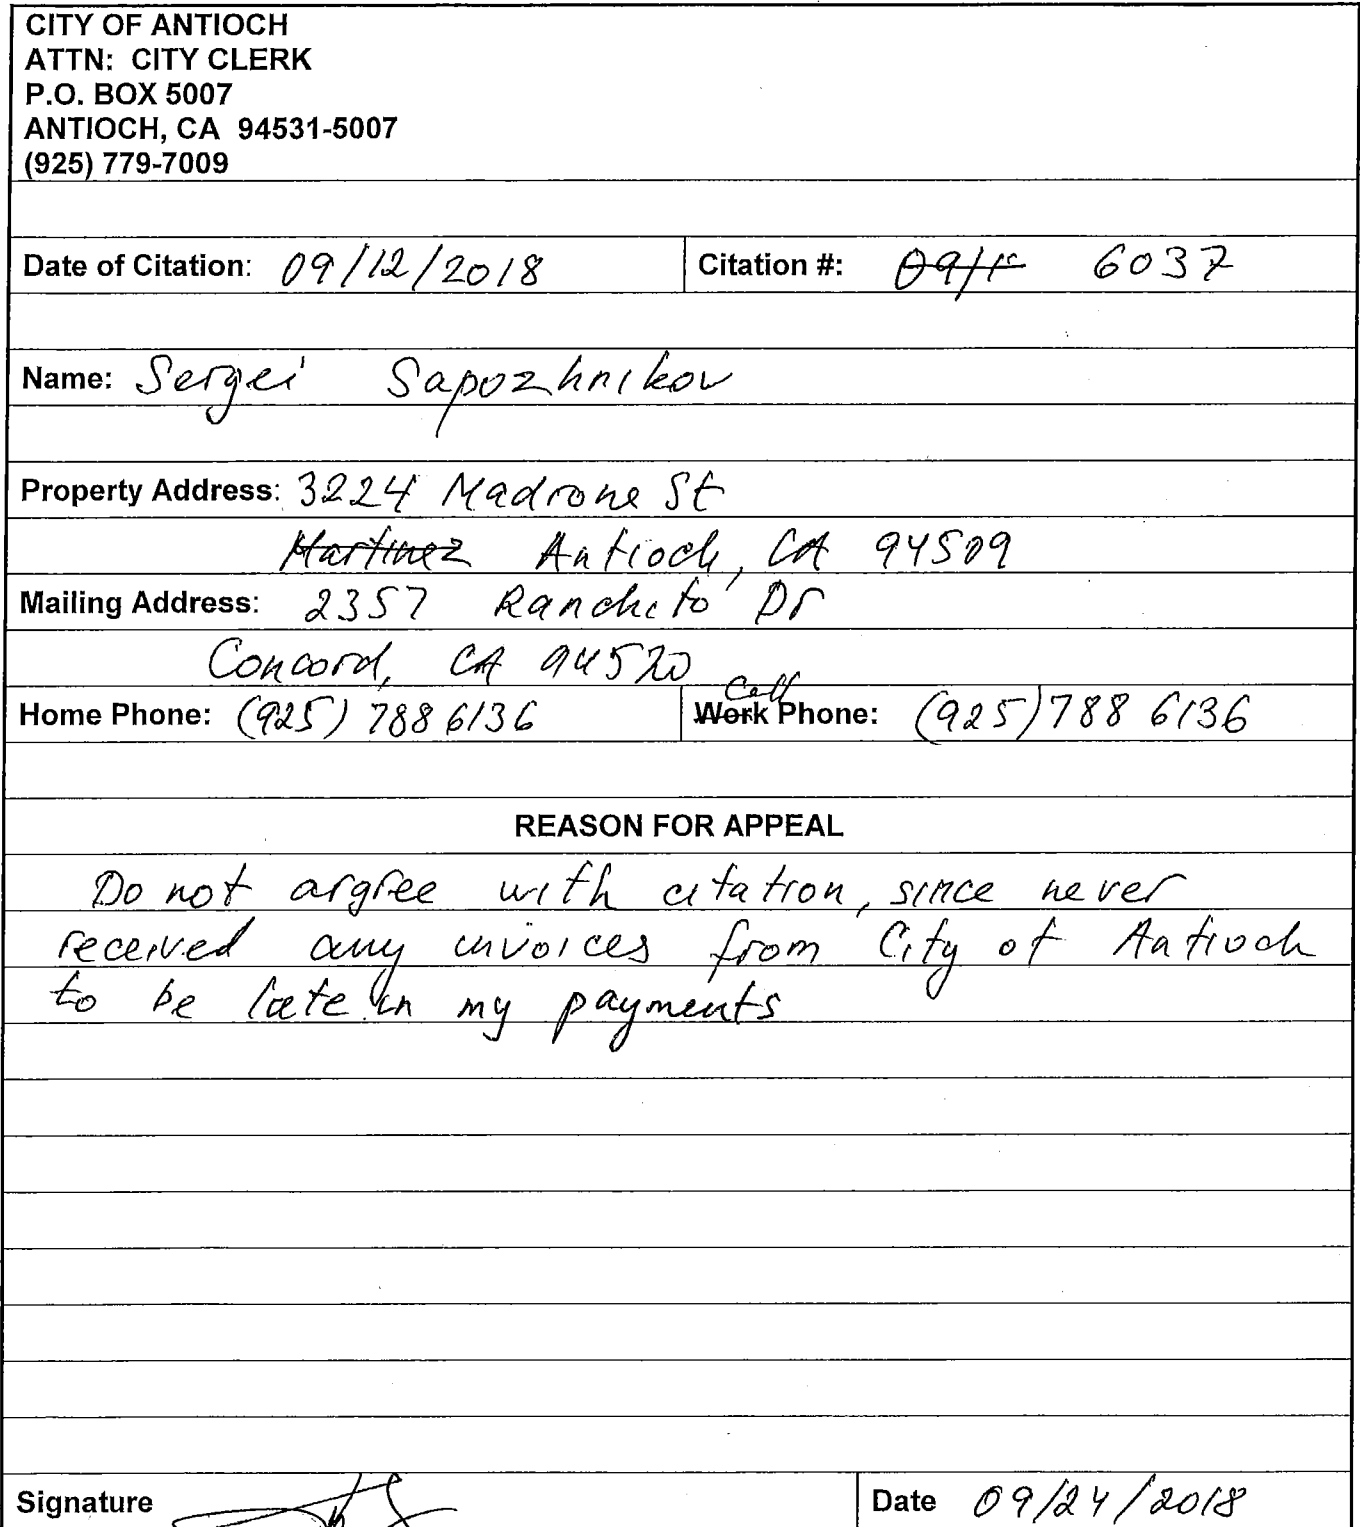 CITY OF ANTIOCH
ATTN: CITY CLERK
P.O. BOX 5007
ANTIOCH, CA 94531-5007
(925) 779-7009
Date of Citation: 09/12/2018 Citation #: 09/1 6037
Name: Sergei Sapozhnikov
Property Address: 3224 Madrone St
Martinez Antioch, CA 94509
Mailing Address: 2357 Ranchito Dr
Concord, CA 94520
Cell
Home Phone: (925) 788 6136 Work Phone: (925) 788 6136
REASON FOR APPEAL
Do not argree with citation, since never
received any invoices from City of Antioch
to be late in my payments
Signature Date 09/24/2018